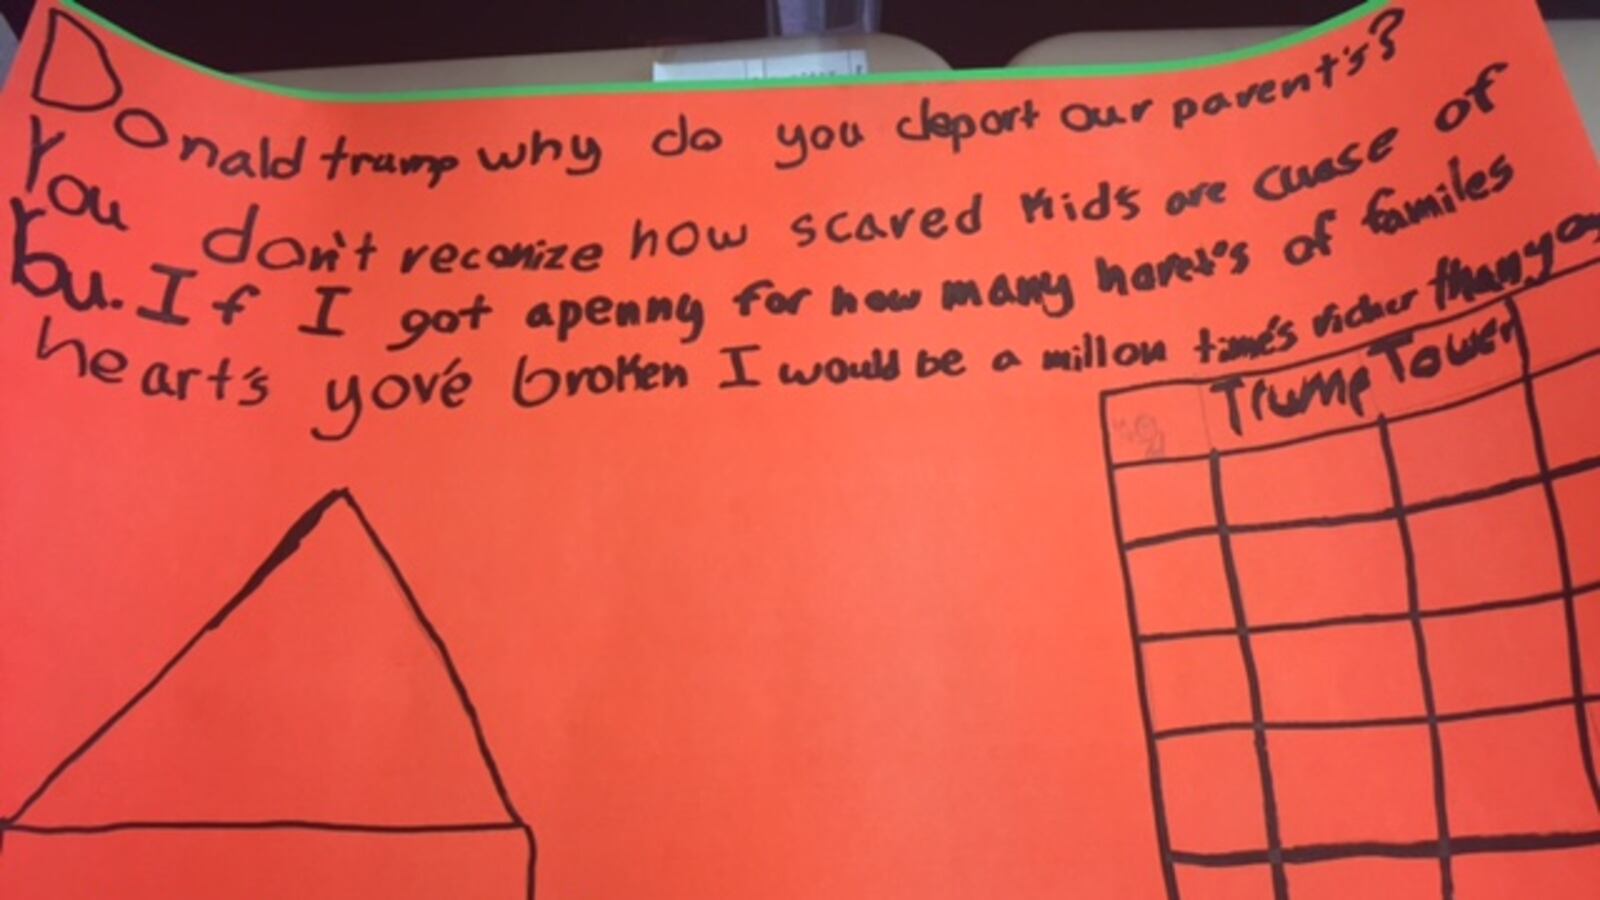 Donald trump why do you deport our parent's?
You don't reconize how scared kids are cuase of
You. If I got apenny for how many haret's of familes
heart's yové broken I would be a millon time's richer than you
Trump Tower